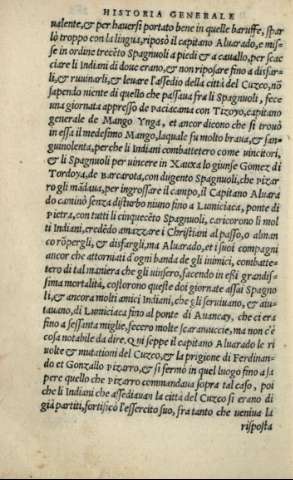 HISTORIA GENERALE
ualente, & per hauersi portato bene in quelle baruffe, spar
lò troppo con la lingua, riposò il capitano Aluarado, e mis-
se in ordine trecẽto Spagnuoli a piedi & a cauallo, per scac
ciare li Indiani di doue erano, & non riposare fino a disfar-
li, & ruuinarli, & leuare l'assedio della città del Cuzco, nõ
sapendo niente di quello che passaua fra li Spagnuoli, fece
una giornata appresso de paciacama con Tizoyo, capitano
generale de Mango Ynga, et ancor dicono che si trouò
in essa il medesimo Mango, laquale fu molto braua, & san-
guinolenta, perche li Indiani combattetero come uincitori,
& li Spagnuoli per uincere in Xauxa lo giunse Gomez di
Tordoya, de Barcarota, con dugento Spagnuoli, che Pizar
ro gli mãdaua, per ingrossare il campo, il Capitano Aluara
do caminò senza disturbo niuno fino a Lumiciaca, ponte di
Pietra, con tutti li cinquecẽto Spagnuoli, caricorono li mol
ti Indiani, credẽdo amazzare i Christiani al passo, o alman
co rõpergli, & disfargli, ma Aluarado, et i suoi compagni
ancor che attorniati d'ogni banda de gli inimici, combatte-
tero di tal maniera che gli uinsero, facendo in essi grandis-
sima mortalità, costorono queste doi giornate assai Spagno
li, & ancora molti amici Indiani, che gli seruiuano, & aiu-
tauano, di Lumiciaca fino al ponte di Auancay, che ci era
fino a sessanta miglie, fecero molte scaramuccie, ma non c'è
cosa notabile da dire. Qui seppe il capitano Aluarado le ri
uolte & mutationi del Cuzco, & la prigione di Ferdinan-
do et Gonzallo Pizarro, & si fermò in quel luogo fino a sa
pere quello che Pizarro commandaua sopra tal caso, poi
che li Indiani che assediauan la città del Cuzco si erano di
già partiti, fortificò l'essercito suo, fra tanto che ueniua la
risposta